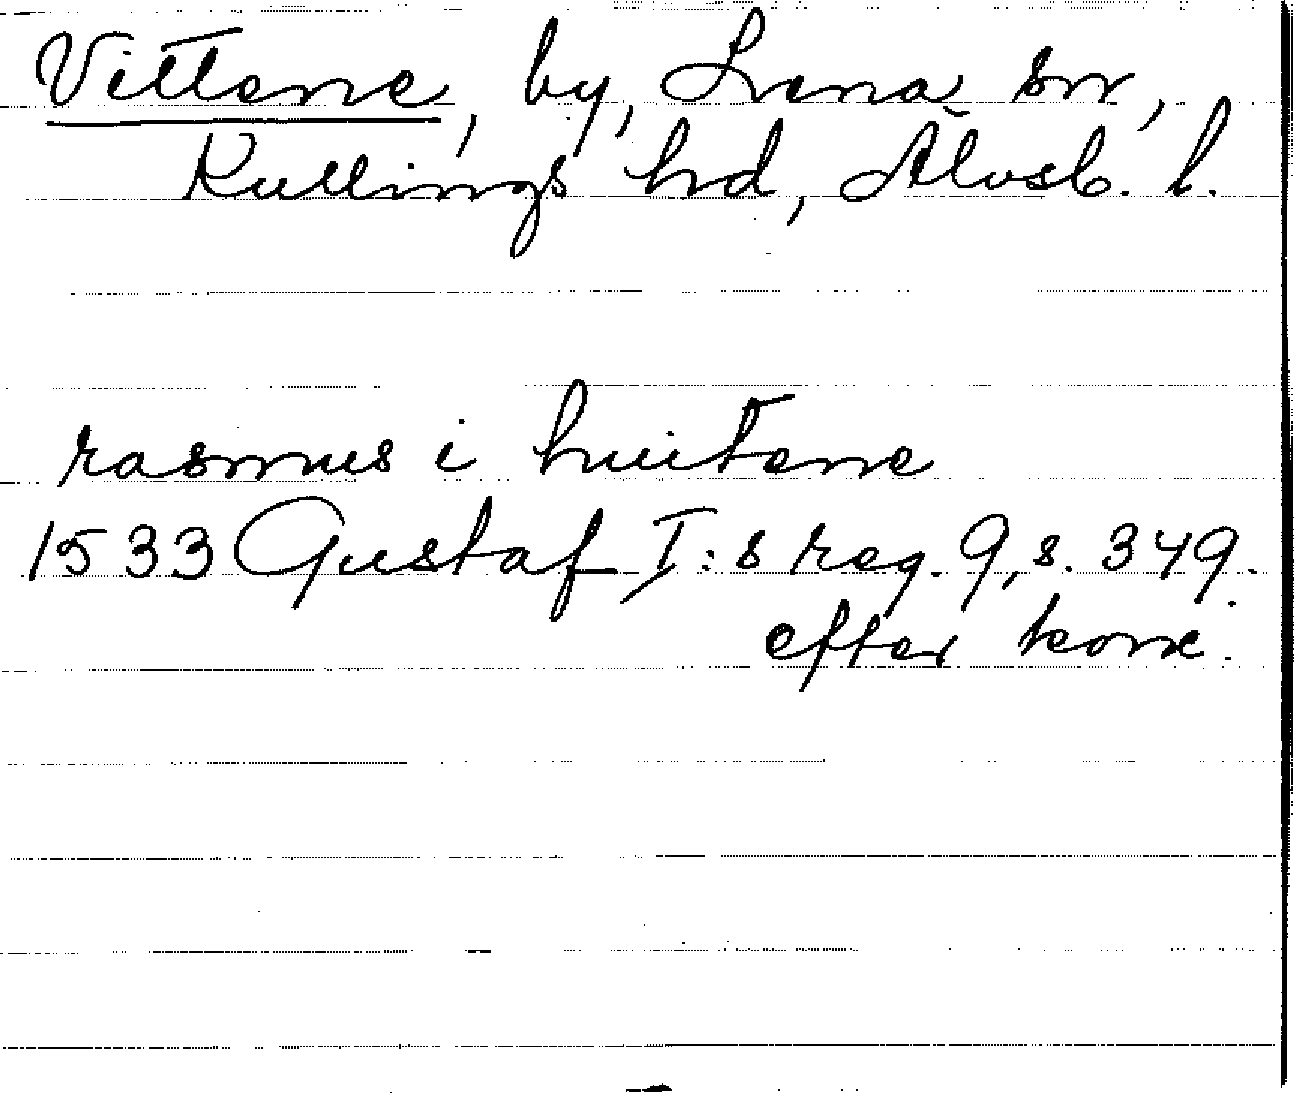 Vittene, by, Lena sn,
Kullings hd, Älvsb. l.
rasmus i huitene
1533 Gustaf I:s reg. 9, s. 349.
efter konc.